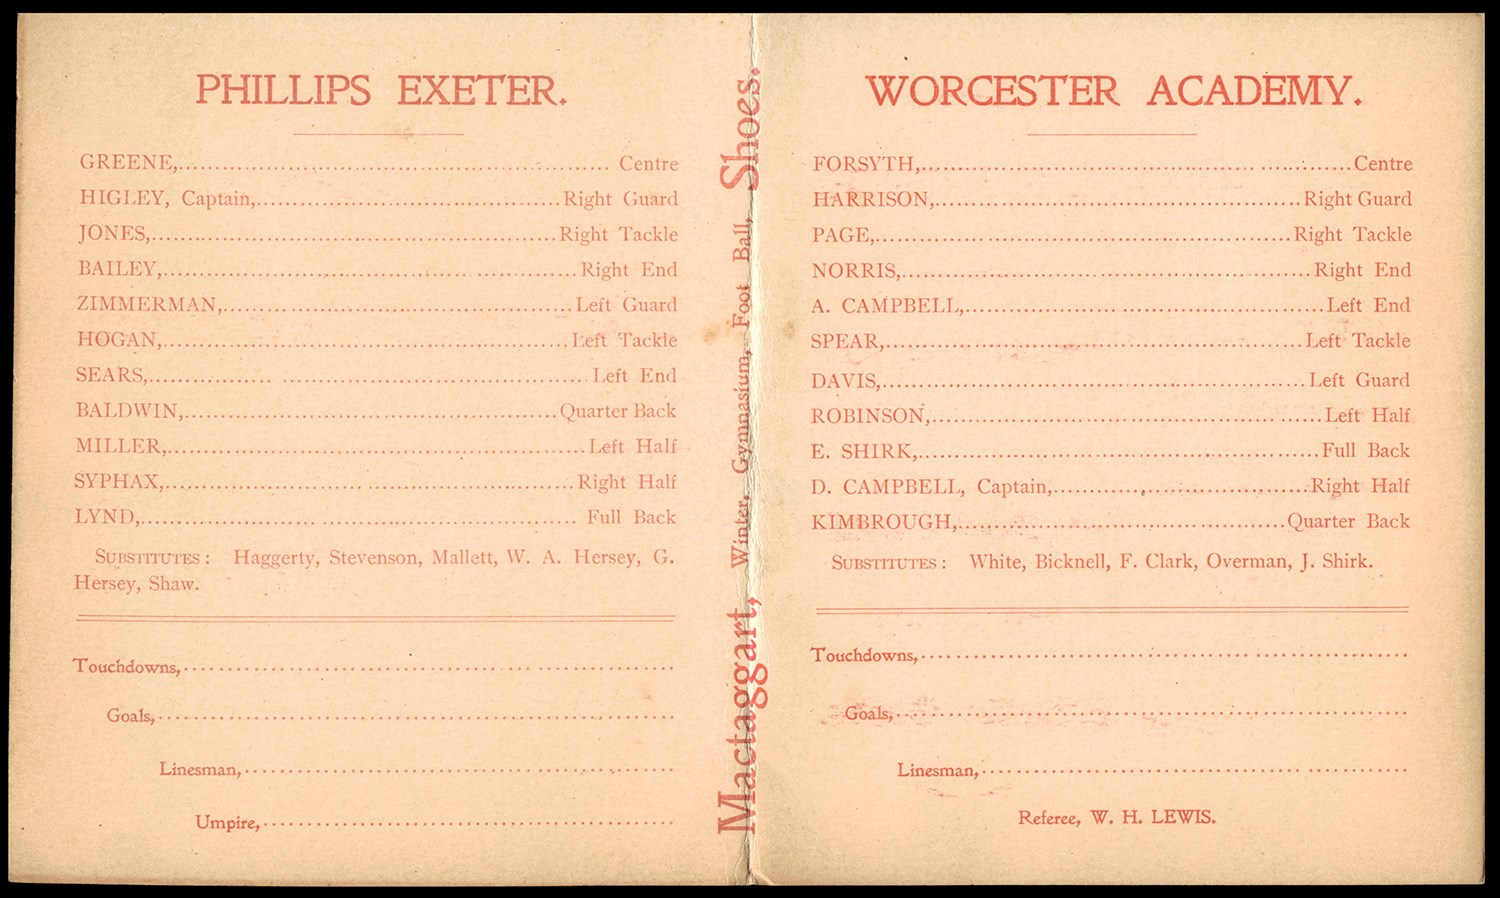 PHILLIPS EXETER.
GREENE, Centre
HIGLEY, Captain, Right Guard
JONES, Right Tackle
BAILEY, Right End
ZIMMERMAN, Left Guard
HOGAN, Left Tackle
SEARS, Left End
BALDWIN, Quarter Back
MILLER, Left Half
SYPHAX, Right Half
LYND, Full Back
SUBSTITUTES: Haggerty, Stevenson, Mallett, W. A. Hersey, G.
Hersey, Shaw.
Touchdowns,
Goals,
Linesman,
Umpire,
Mactaggart, Winter, Gymnasium, Foot Ball, Shoes.
WORCESTER ACADEMY.
FORSYTH, Centre
HARRISON, Right Guard
PAGE, Right Tackle
NORRIS, Right End
A. CAMPBELL, Left End
SPEAR, Left Tackle
DAVIS, Left Guard
ROBINSON, Left Half
E. SHIRK, Full Back
D. CAMPBELL, Captain, Right Half
KIMBROUGH, Quarter Back
SUBSTITUTES: White, Bicknell, F. Clark, Overman, J. Shirk.
Touchdowns,
Goals,
Linesman,
Referee, W. H. LEWIS.